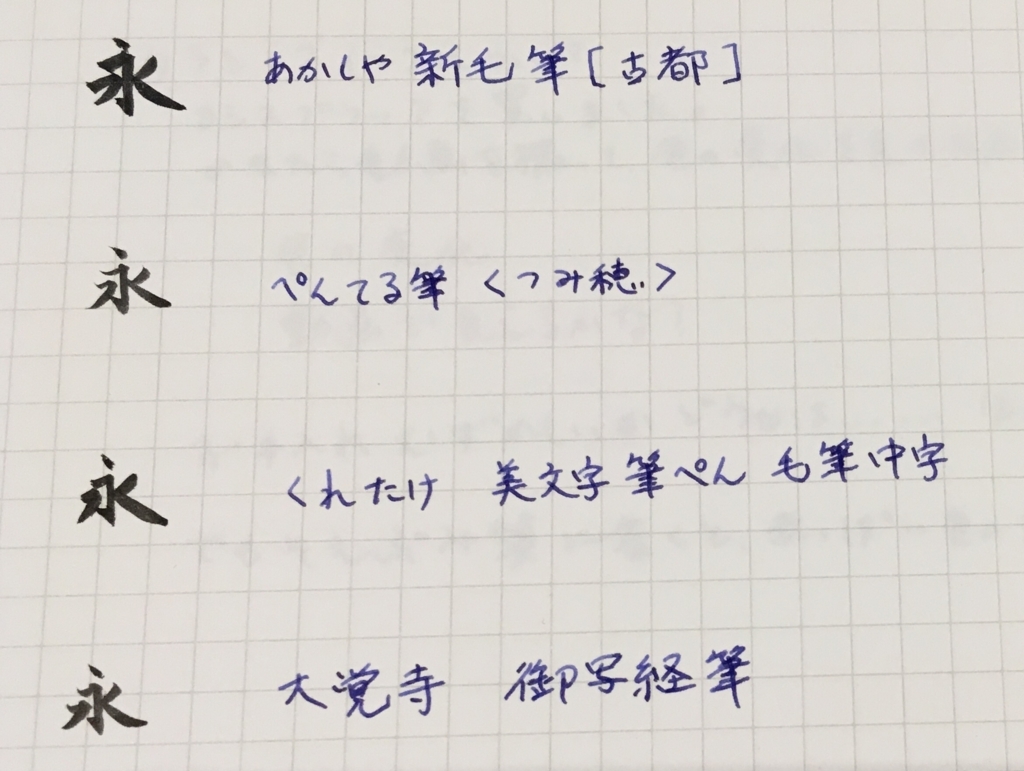 永 あかしや 新毛筆[古都]
永 ぺんてる筆 <つみ穂>
永 くれたけ 美文字筆ぺん 毛筆中字
永 大覚寺 御写経筆